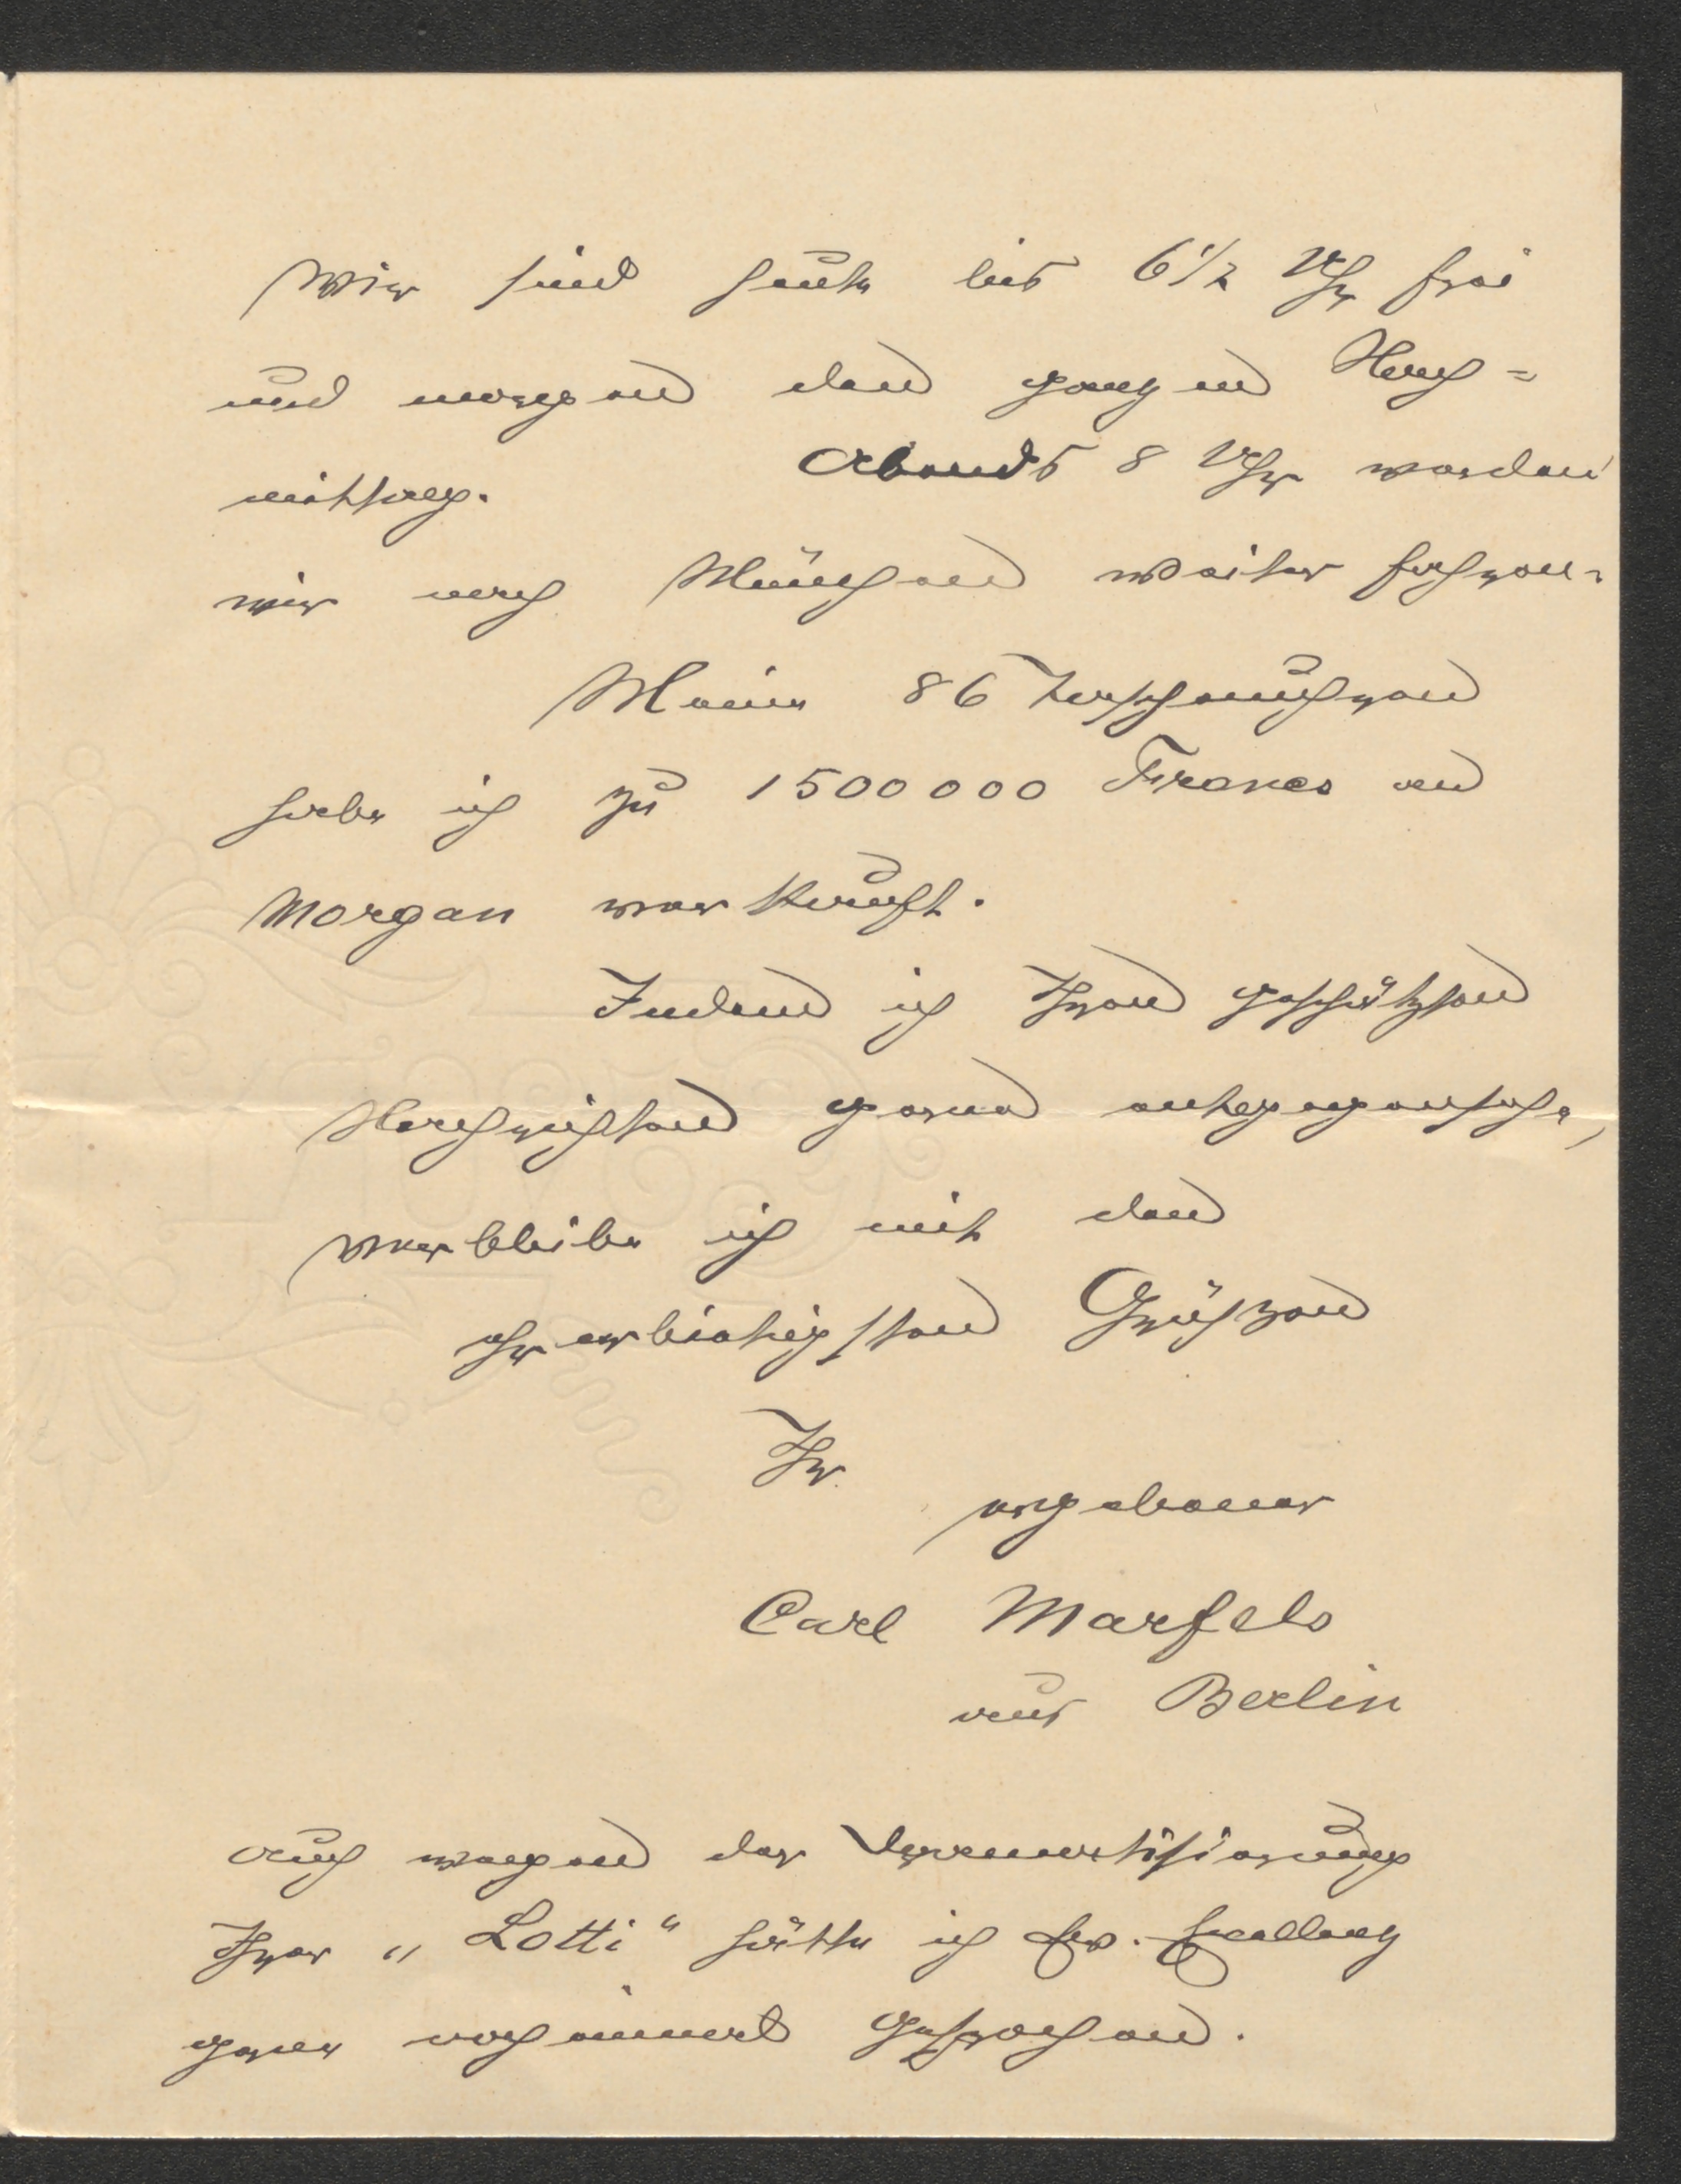 Wir sind heute bis 6 1/2 Uhr frei
und morgen den ganzen Nach=
mittag. Abends 8 Uhr werden
wir nach München weiter fahren.
Meine 86 Taschenuhren
habe ich zu 1500000 Francs an
Morgan verkauft.
Indem ich Ihren geschätzten
Nachrichten gerne entgegensehe,
verbleibe ich mit den
ehrerbietigsten Grüßen
Ihr
ergebener
Carl Marfels
aus Berlin
Auch wegen der Dramatisierung
Ihrer „Lotti“ hätte ich Ew. Excellenz
gerne noch einmal gesprochen.